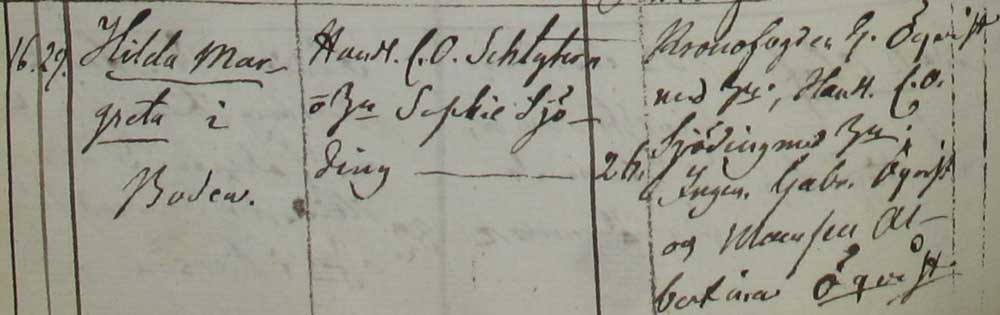 16. 29. Hilda Mar-
greta i
Boden.
Handl. C. O. Schlytern
o. Hu Sophie Sjö-
ding — 26.
Kronofogden E. Öqvist
med Hu; Handl. C. O.
Sjöding med Hu;
Ingen. Gabr. Öqvist
og Mamsell Al-
bertina Öqvist.